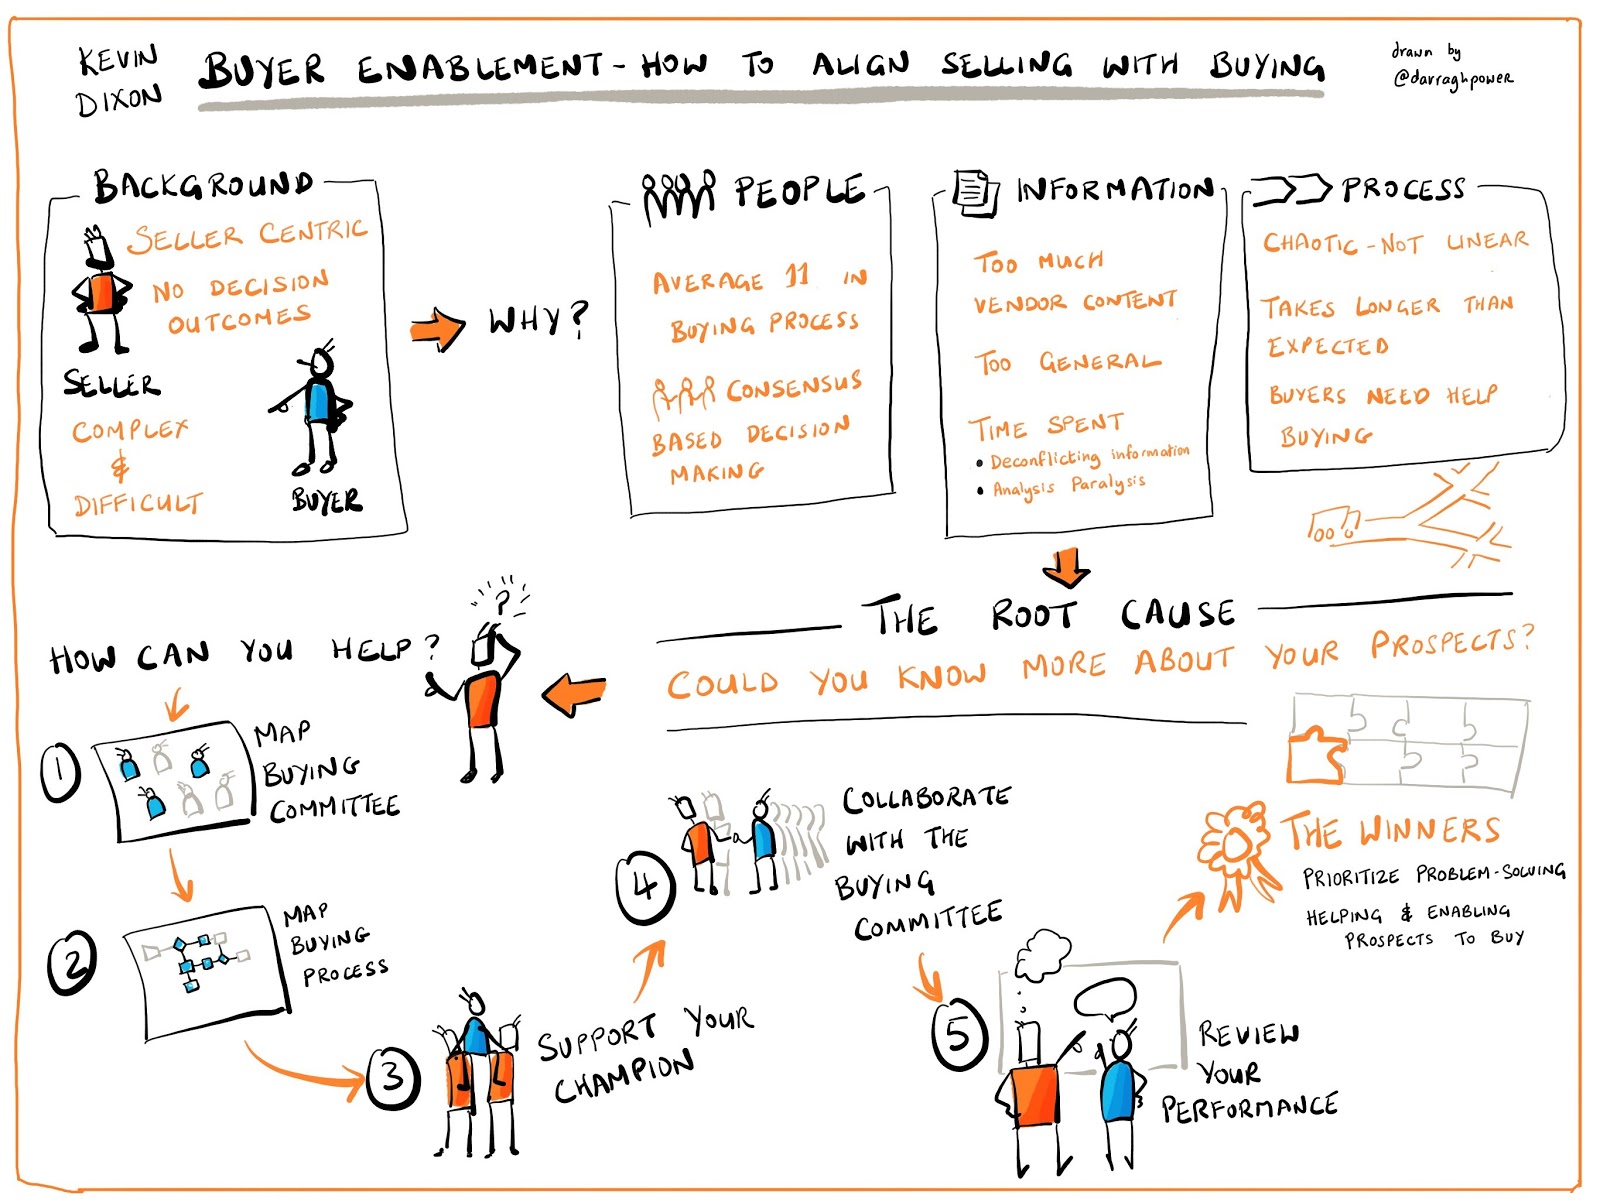 KEVIN
DIXON
BUYER ENABLEMENT - HOW TO ALIGN SELLING WITH BUYING
drawn by
@darraghpower
BACKGROUND
SELLER CENTRIC
NO DECISION
OUTCOMES
SELLER
COMPLEX
&
DIFFICULT
BUYER
WHY?
PEOPLE
AVERAGE 11 IN
BUYING PROCESS
CONSENSUS
BASED DECISION
MAKING
INFORMATION
TOO MUCH
VENDOR CONTENT
TOO GENERAL
TIME SPENT
• Deconflicting information
• Analysis Paralysis
PROCESS
CHAOTIC - NOT LINEAR
TAKES LONGER THAN
EXPECTED
BUYERS NEED HELP
BUYING
THE ROOT CAUSE
COULD YOU KNOW MORE ABOUT YOUR PROSPECTS?
HOW CAN YOU HELP?
?
1
MAP
BUYING
COMMITTEE
2
MAP
BUYING
PROCESS
3
SUPPORT YOUR
CHAMPION
4
COLLABORATE
WITH THE
BUYING
COMMITTEE
5
REVIEW
YOUR
PERFORMANCE
THE WINNERS
PRIORITIZE PROBLEM-SOLVING
HELPING & ENABLING
PROSPECTS TO BUY